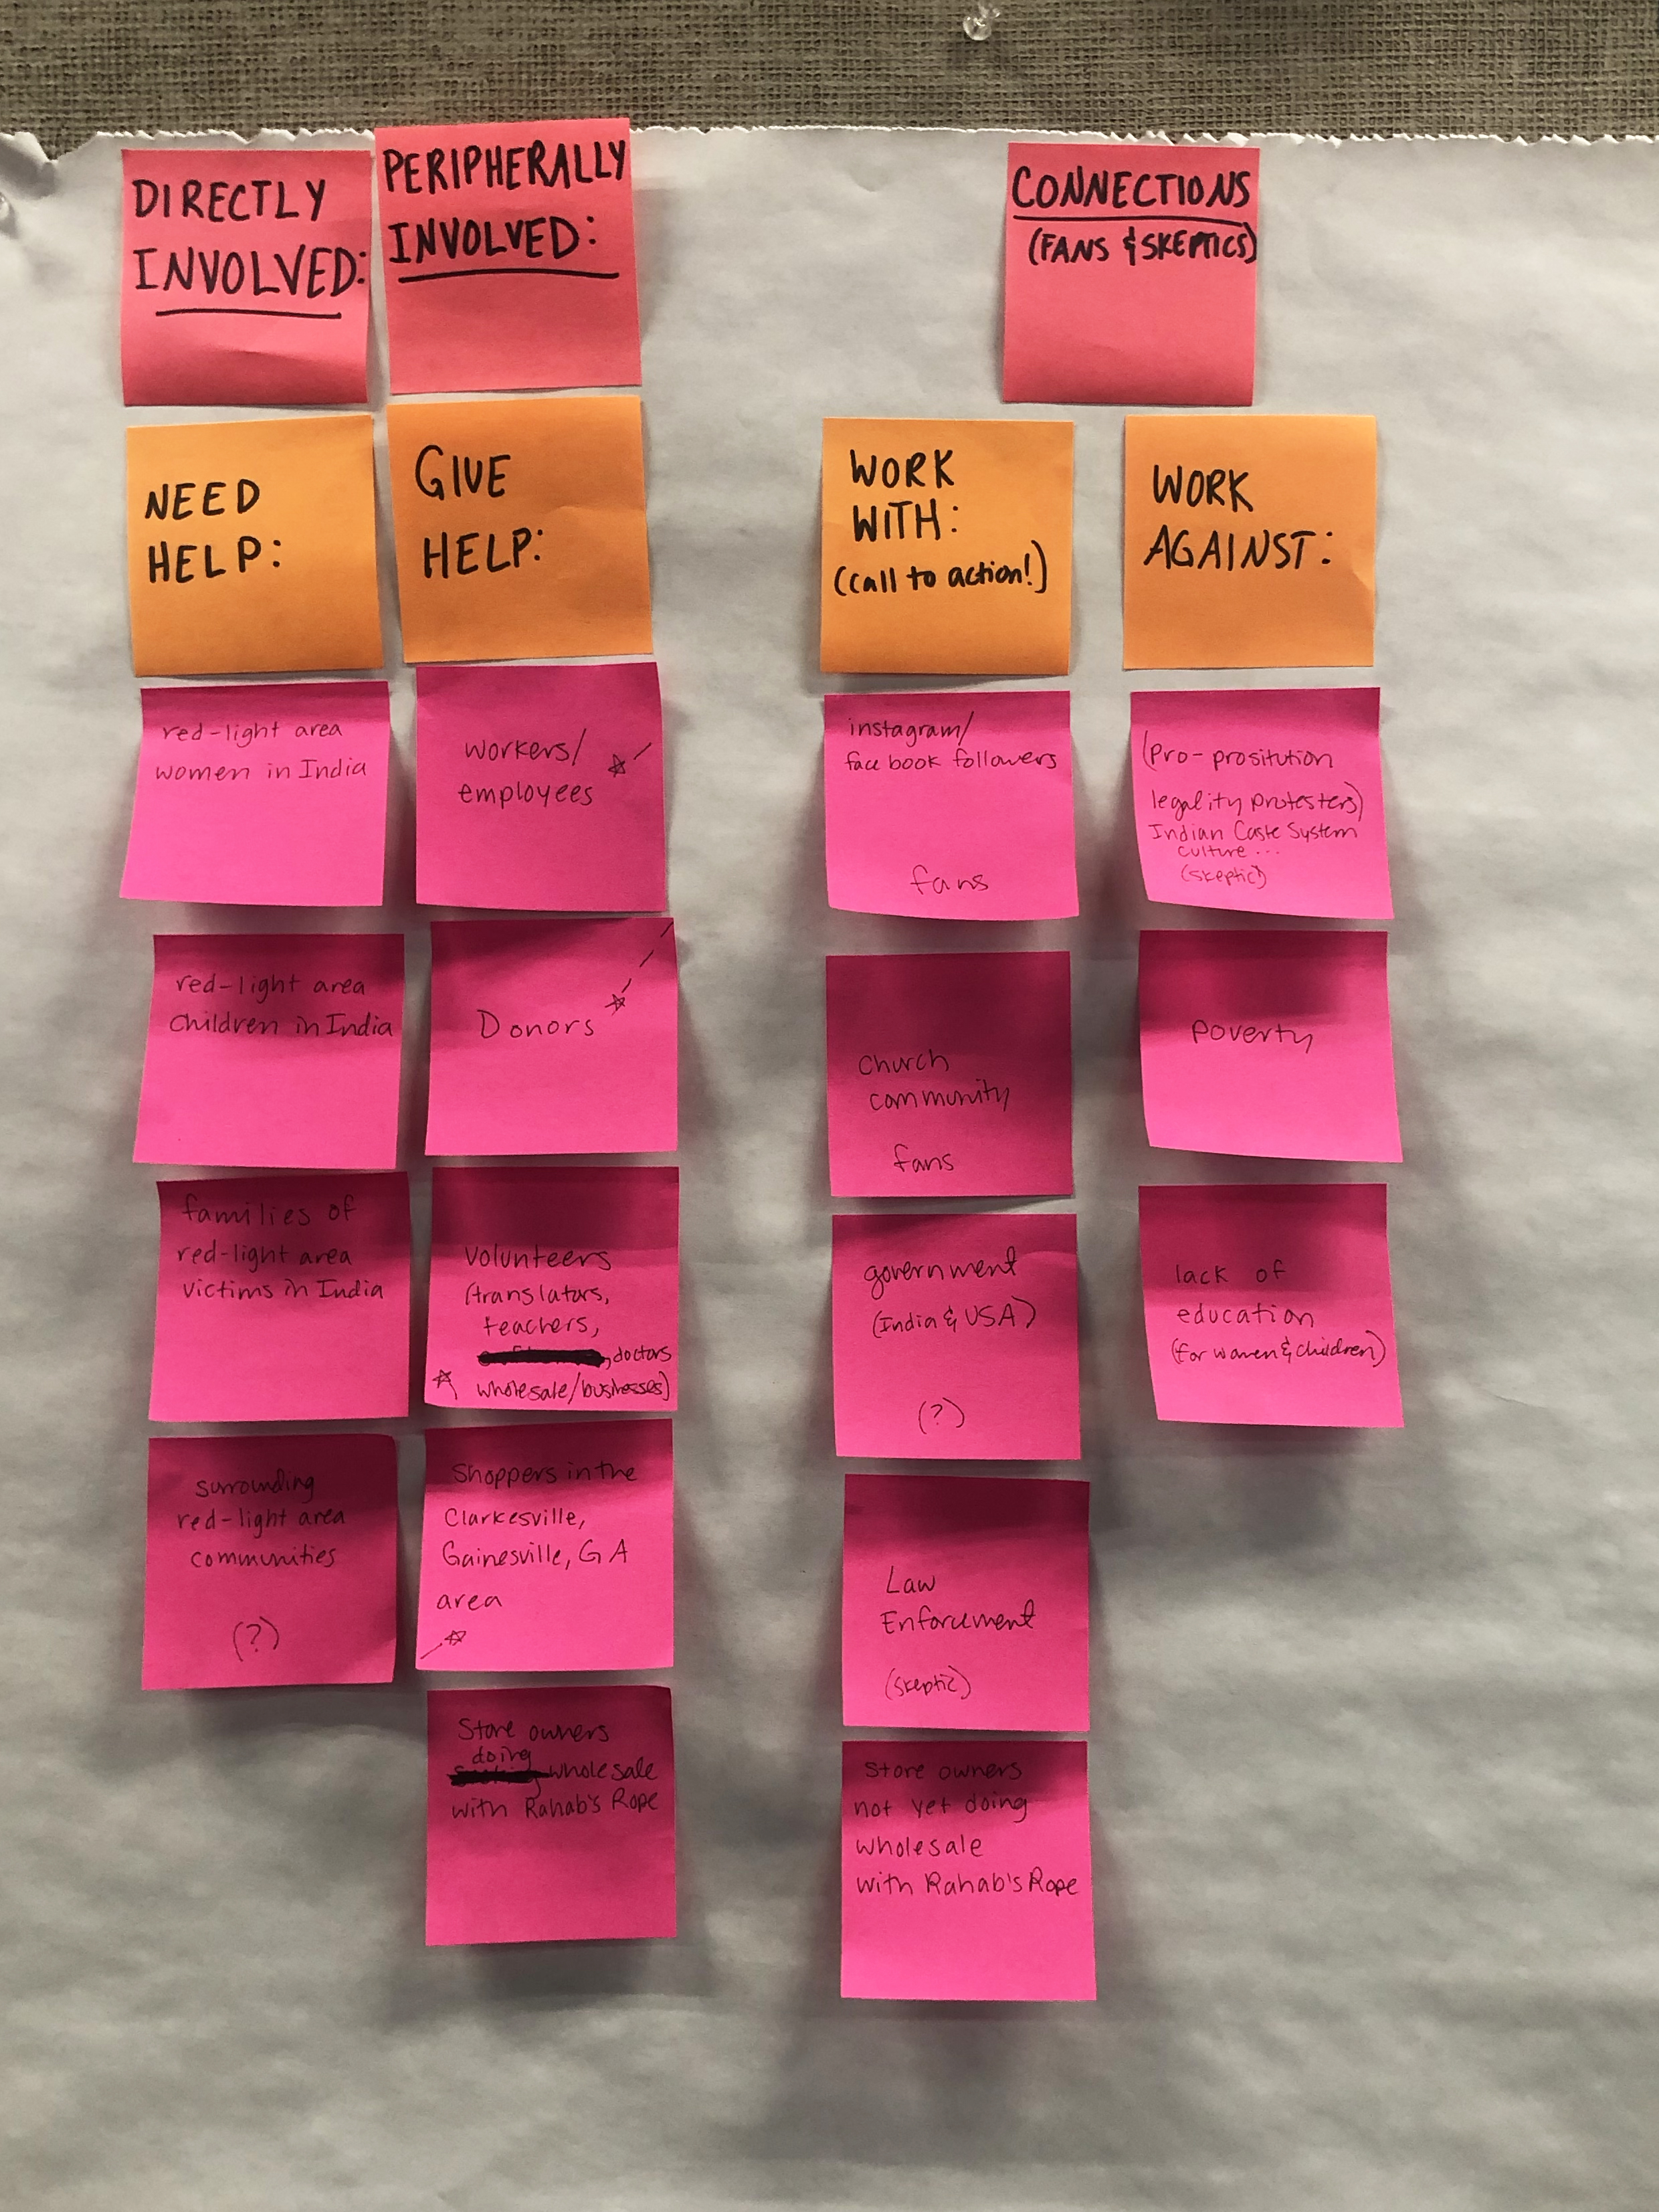 DIRECTLY
INVOLVED:
PERIPHERALLY
INVOLVED:
CONNECTIONS
(FANS & SKEPTICS)
NEED
HELP:
GIVE
HELP:
WORK
WITH:
(call to action!)
WORK
AGAINST:
red-light area
women in India
red-light area
children in India
families of
red-light area
victims in India
surrounding
red-light area
communities
(?)
workers/
employees
Donors
volunteers
(translators,
teachers,
, doctors
wholesale/businesses)
Shoppers in the
Clarkesville,
Gainesville, GA
area
Store owners
doing
wholesale
with Rahab's Rope
instagram/
facebook followers
fans
church
community
fans
government
(India & USA)
(?)
Law
Enforcement
(skeptic)
Store owners
not yet doing
wholesale
with Rahab's Rope
(pro-prositution
legality protesters)
Indian Caste System
culture...
(skeptic)
poverty
lack of
education
(for women & children)